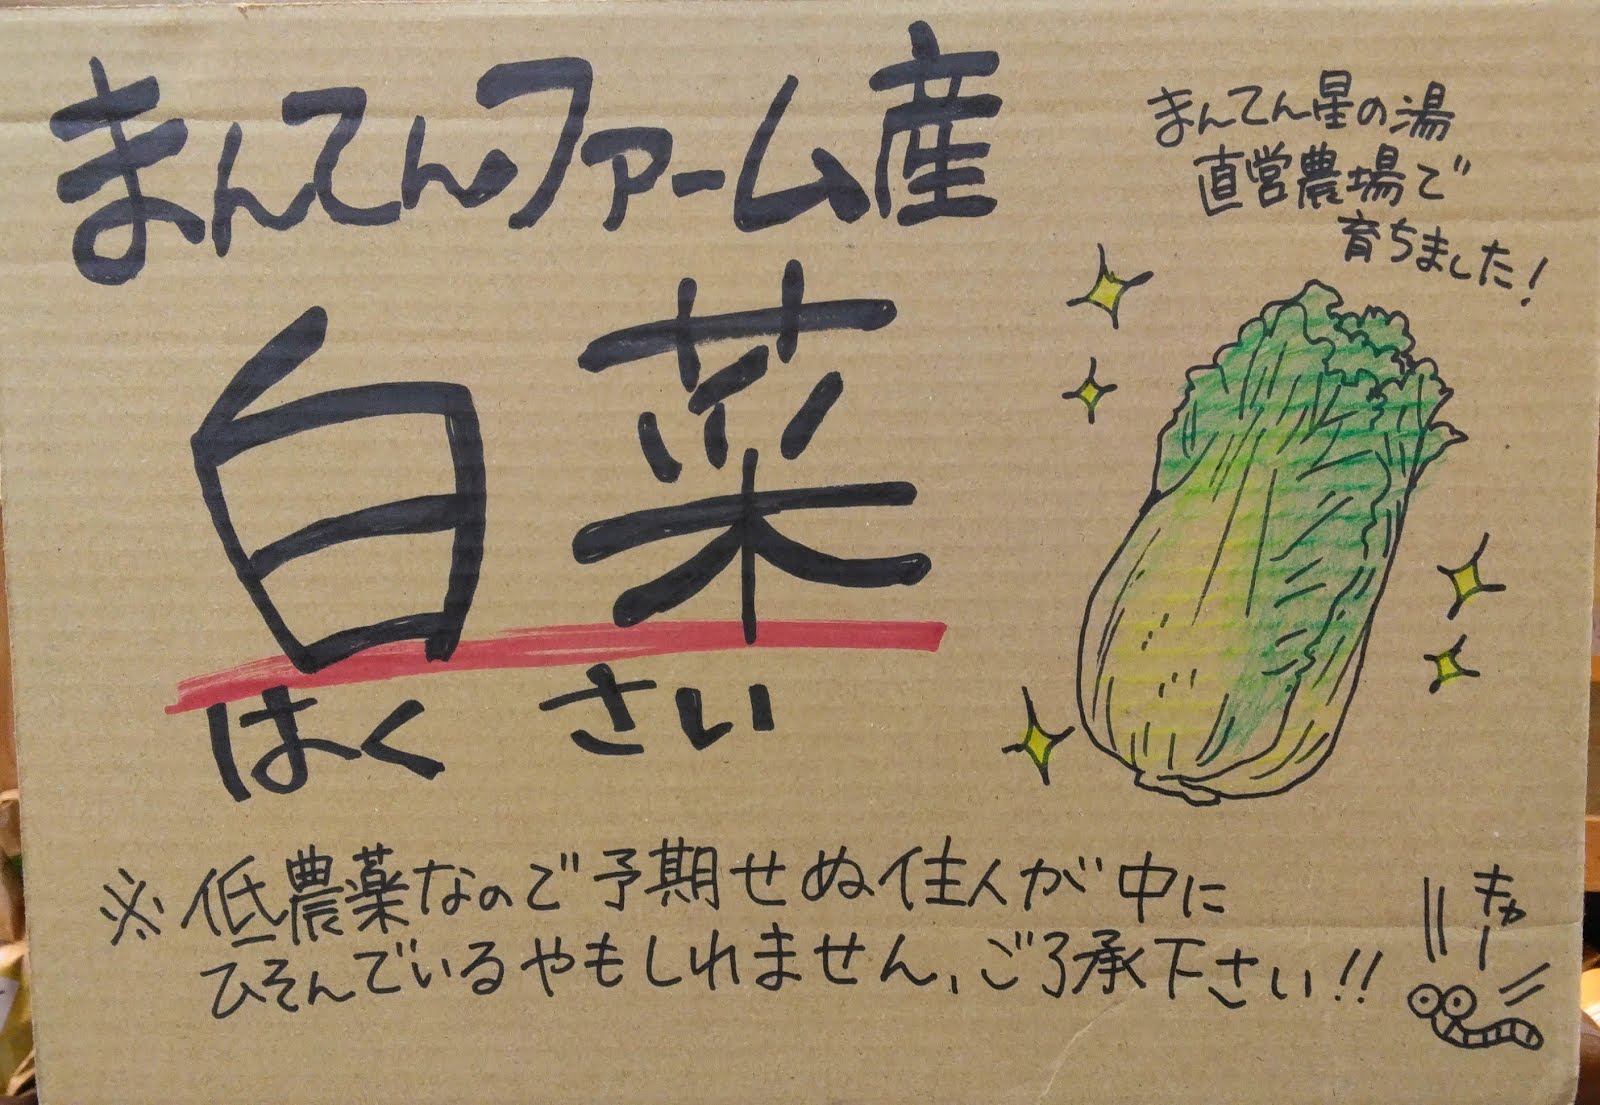 まんてんファーム産
まんてん星の湯
直営農場で
育ちました!
白菜
はくさい
※低農薬なので予期せぬ住人が中に
ひそんでいるやもしれません、ご了承下さい!!
キャー